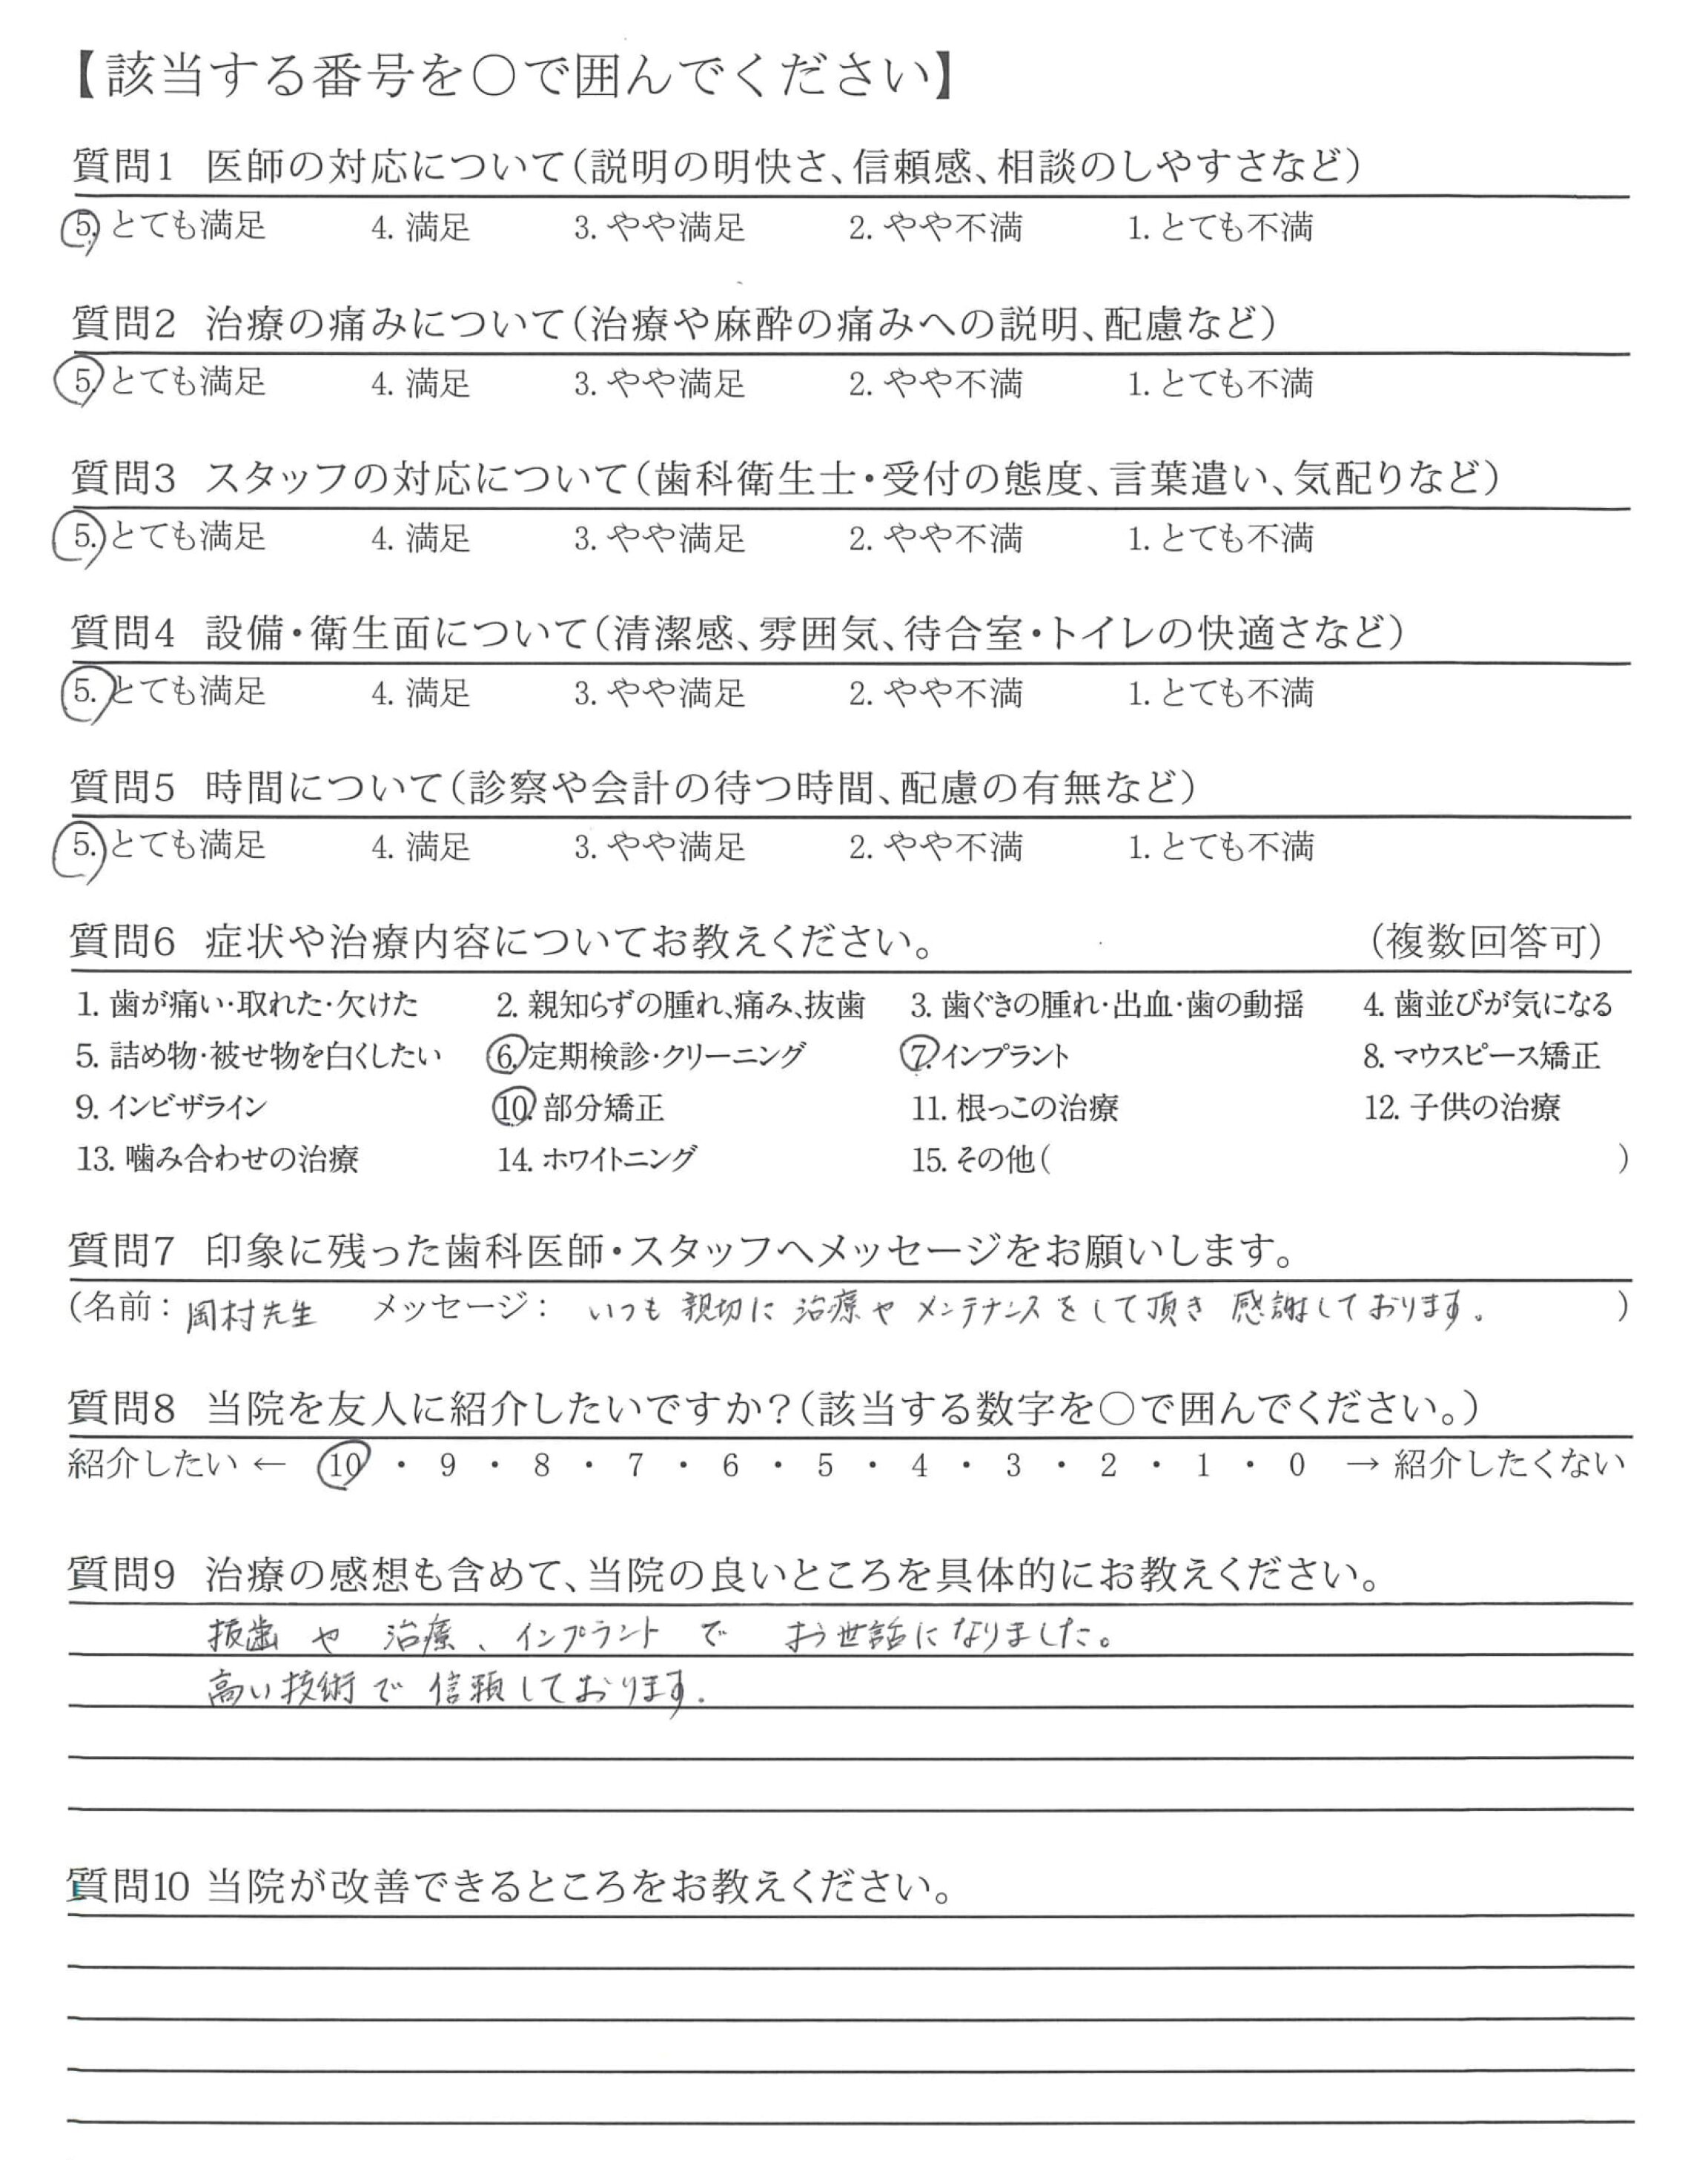 【該当する番号を○で囲んでください】
質問1 医師の対応について(説明の明快さ、信頼感、相談のしやすさなど)
5. とても満足 4. 満足 3. やや満足 2. やや不満 1. とても不満
質問2 治療の痛みについて(治療や麻酔の痛みへの説明、配慮など)
5. とても満足 4. 満足 3. やや満足 2. やや不満 1. とても不満
質問3 スタッフの対応について(歯科衛生士・受付の態度、言葉遣い、気配りなど)
5. とても満足 4. 満足 3. やや満足 2. やや不満 1. とても不満
質問4 設備・衛生面について(清潔感、雰囲気、待合室・トイレの快適さなど)
5. とても満足 4. 満足 3. やや満足 2. やや不満 1. とても不満
質問5 時間について(診察や会計の待つ時間、配慮の有無など)
5. とても満足 4. 満足 3. やや満足 2. やや不満 1. とても不満
質問6 症状や治療内容についてお教えください。 (複数回答可)
1. 歯が痛い・取れた・欠けた 2. 親知らずの腫れ、痛み、抜歯 3. 歯ぐきの腫れ・出血・歯の動揺 4. 歯並びが気になる
5. 詰め物・被せ物を白くしたい 6. 定期検診・クリーニング 7. インプラント 8. マウスピース矯正
9. インビザライン 10. 部分矯正 11. 根っこの治療 12. 子供の治療
13. 噛み合わせの治療 14. ホワイトニング 15. その他( )
質問7 印象に残った歯科医師・スタッフへメッセージをお願いします。
(名前: 岡村先生 メッセージ: いつも親切に治療やメンテナンスをして頂き感謝しております。 )
質問8 当院を友人に紹介したいですか?(該当する数字を○で囲んでください。)
紹介したい ← 10 ・ 9 ・ 8 ・ 7 ・ 6 ・ 5 ・ 4 ・ 3 ・ 2 ・ 1 ・ 0 → 紹介したくない
質問9 治療の感想も含めて、当院の良いところを具体的にお教えください。
抜歯や治療、インプラントでお世話になりました。
高い技術で信頼しております。
質問10 当院が改善できるところをお教えください。